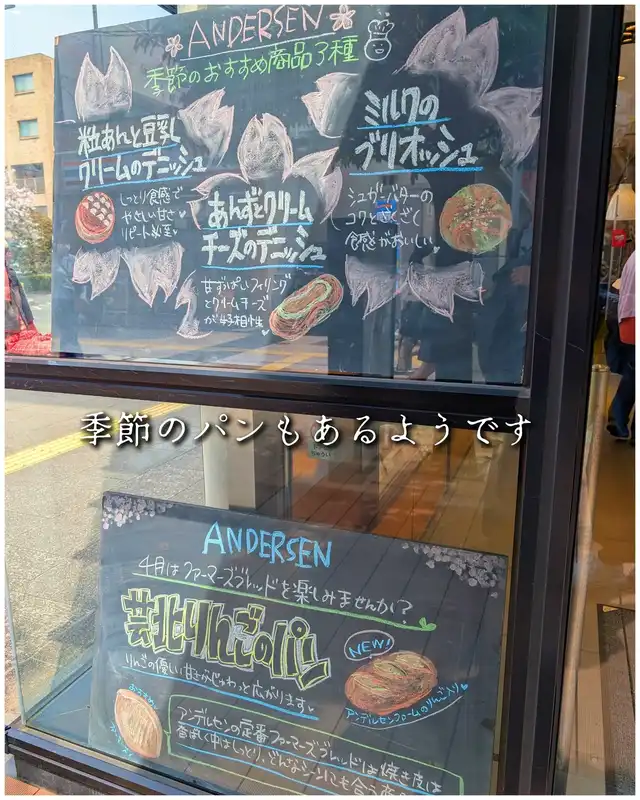 ANDERSEN
季節のおすすめ商品3種
粒あんと豆乳
クリームのデニッシュ
しっとり食感で
やさしい甘さ
リピート必至♥
あんずとクリーム
チーズのデニッシュ
甘ずっぱいフィリング
とクリームチーズ
が好相性♥
ミルクの
ブリオッシュ
シュガーバターの
コクとざくざく
食感がおいしい♥
季節のパンもあるようです
ANDERSEN
4月はファーマーズブレッドを楽しみませんか?
芸北りんごのパン
りんごの優しい甘さがじゅわっと広がります♥
NEW!
アンデルセンファームのりんご入り♥
おすすめ
アンデルセンの定番ファーマーズブレッドは焼き皮は
香ばしく中はしっとり。どんなシーンにも合う